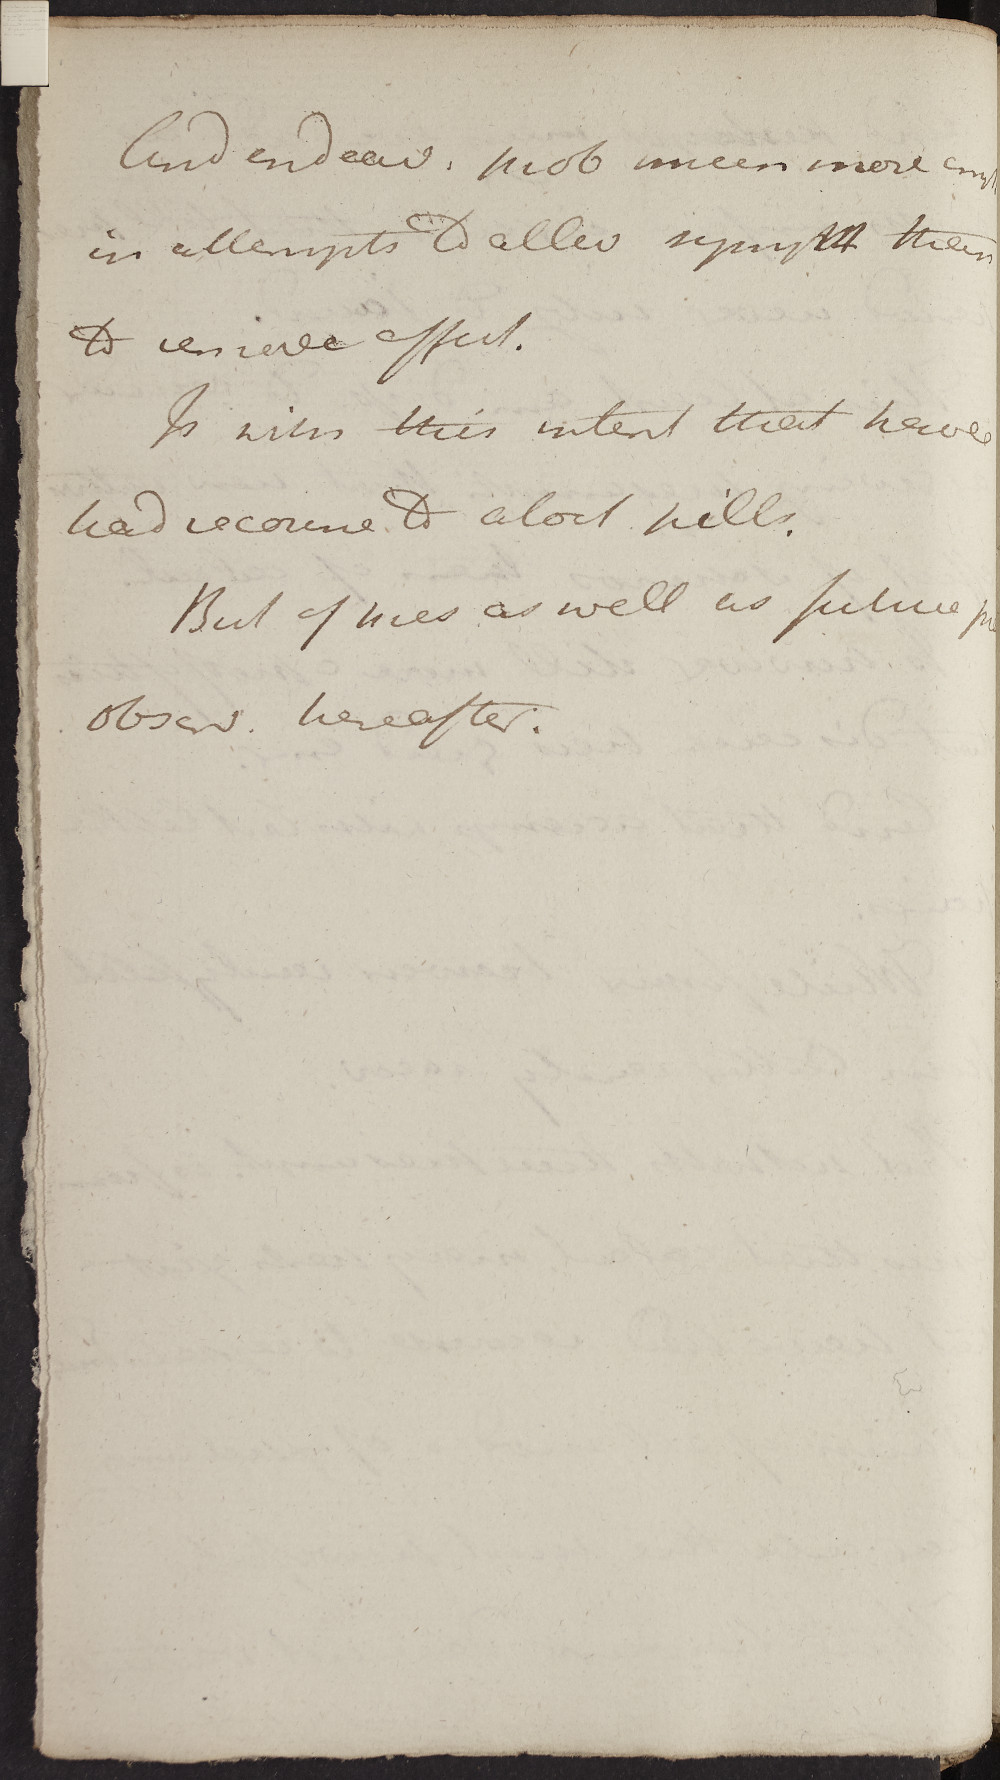 And endeav. prob much more empl
in attempts to allev sympt than
to remove effect.
Is with this intent that have
had recourse to aloet pills.
But of this as well as future
observ. hereafter.